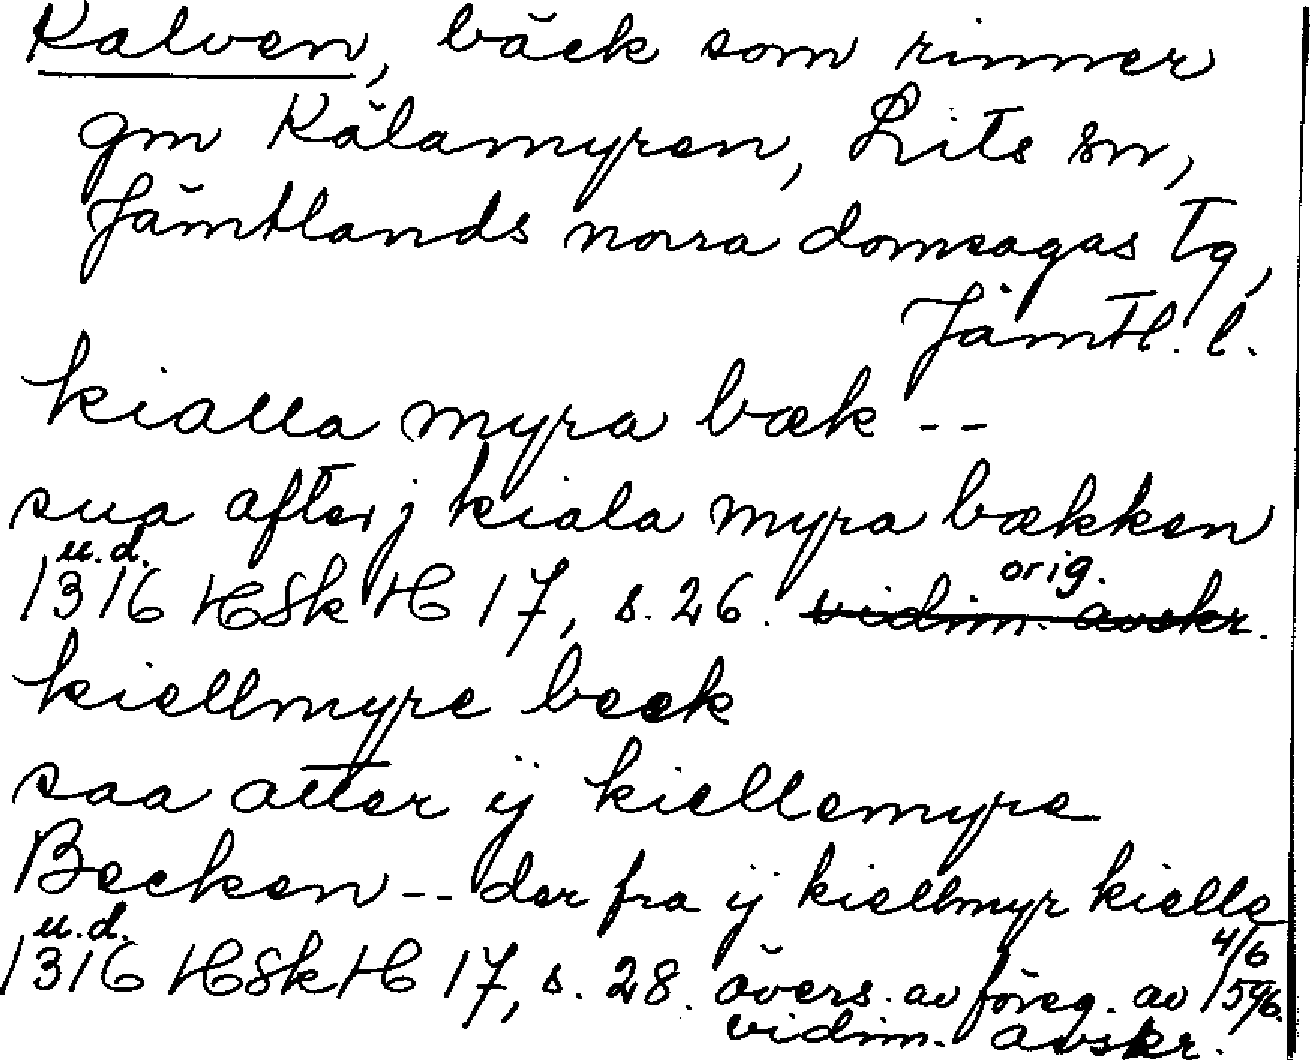 Kalven, bäck som rinner
gm Kälamyren, Lits sn,
Jämtlands norra domsagas tg,
Jämtl. l.
kialla myra bæk --
sua after j kiala myra bækken
u.d.
1316 HSkH 17, s. 26. orig. vidim. avskr.
kiellmyre beek
saa atter ij kiellemyre
Becken -- der fra ij kiellmyr kielle
u.d.
1316 HSkH 17, s. 28. övers. av föreg. av 4/6 1596.
vidim. avskr.